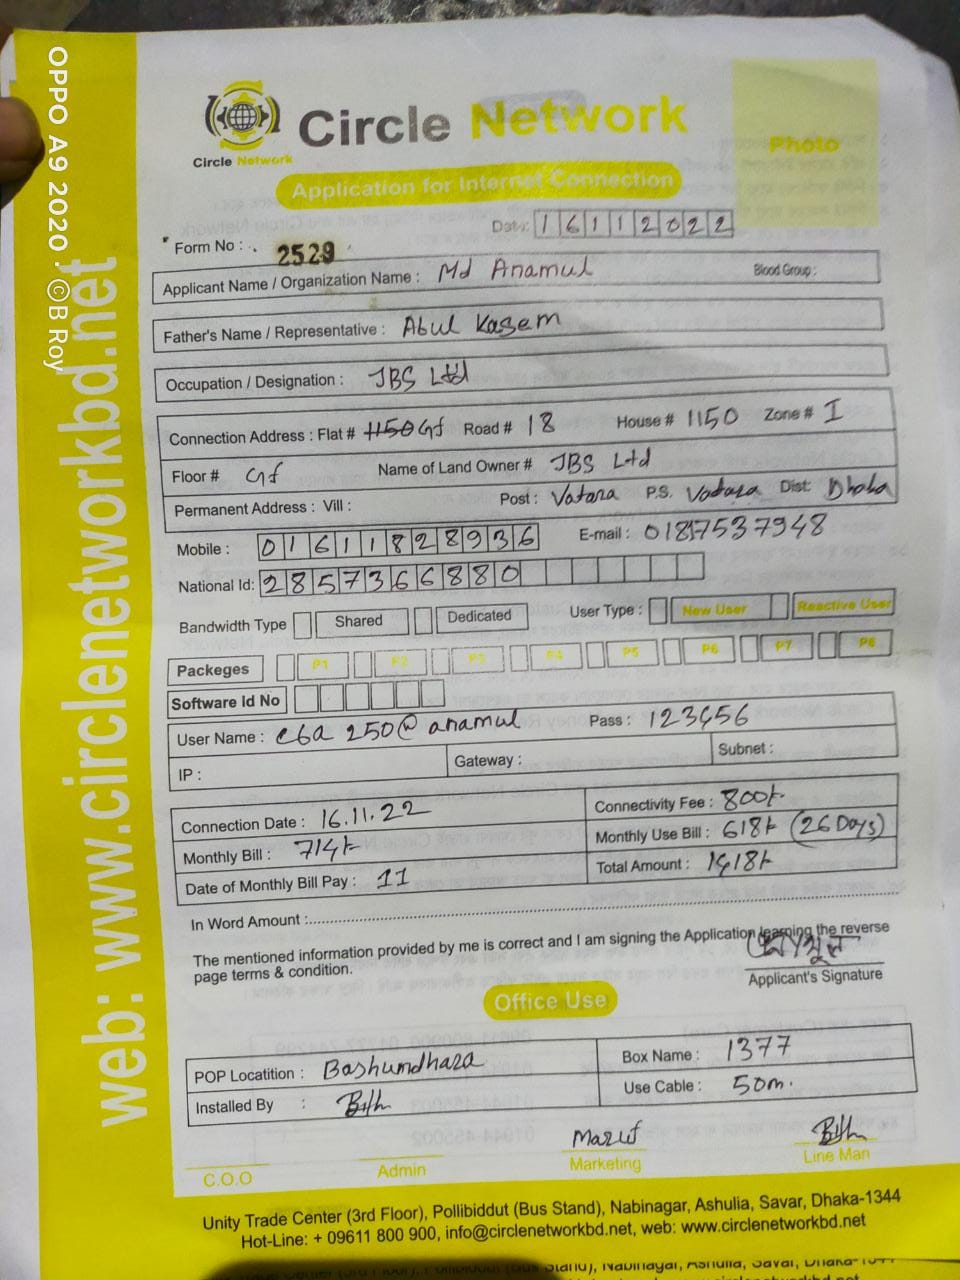 OPPO A9 2020 · ©B Roy
web: www.circlenetworkbd.net
Circle Network
Circle Network
Photo
Application for Internet Connection
Date: 16112022
Form No : 2529
Applicant Name / Organization Name : Md Anamul Blood Group :
Father's Name / Representative : Abul Kasem
Occupation / Designation : JBS Ltd
Connection Address : Flat # 1150 Gf Road # 18 House # 1150 Zone # I
Floor # Gf Name of Land Owner # JBS Ltd
Permanent Address : Vill : Post : Vatara P.S. Vatara Dist: Dhaka
Mobile : 01611828936 E-mail : 01817537948
National Id: 2857366880
Bandwidth Type Shared Dedicated User Type : New User Reactive User
Packeges P1 P2 P3 P4 P5 P6 P7 P8
Software Id No
User Name : c6a 250@anamul Pass : 123456
IP : Gateway : Subnet :
Connection Date : 16.11.22 Connectivity Fee : 800/-
Monthly Bill : 714/- Monthly Use Bill : 618/- (26 Days)
Date of Monthly Bill Pay : 11 Total Amount : 1418/-
In Word Amount :
The mentioned information provided by me is correct and I am signing the Application learning the reverse
page terms & condition.
Applicant's Signature
Office Use
POP Locatition : Bashundhara Box Name : 1377
Installed By : Use Cable : 50m.
Maruf
C.O.O Admin Marketing Line Man
Unity Trade Center (3rd Floor), Pollibiddut (Bus Stand), Nabinagar, Ashulia, Savar, Dhaka-1344
Hot-Line: + 09611 800 900, info@circlenetworkbd.net, web: www.circlenetworkbd.net